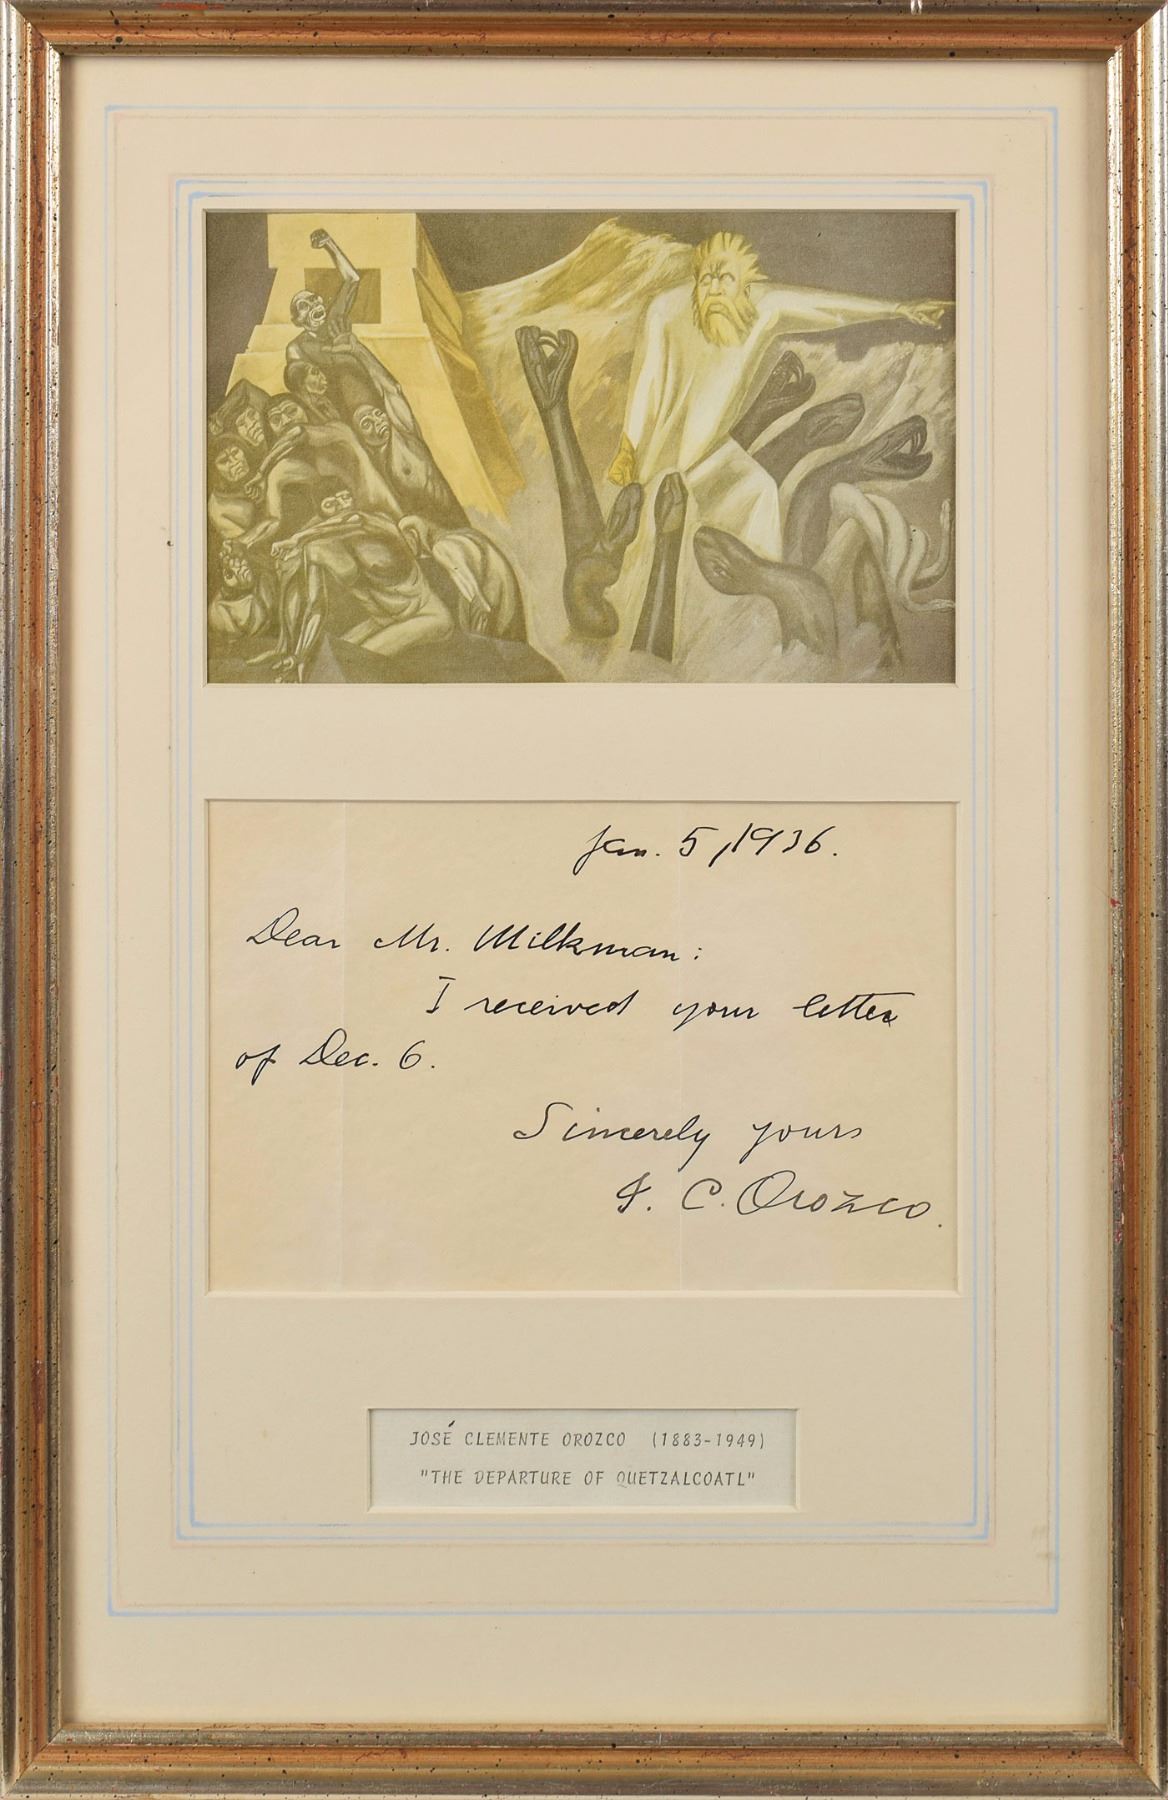 Jan. 5, 1936.
Dear Mr. Milkman:
I received your letter
of Dec. 6.
Sincerely yours
J. C. Orozco.
JOSÉ CLEMENTE OROZCO (1883-1949)
"THE DEPARTURE OF QUETZALCOATL"